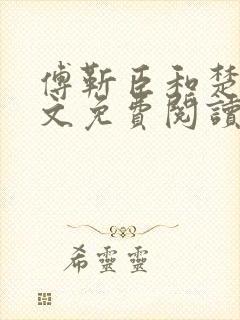 傅靳臣和楚
文免費閱讀
希靈靈